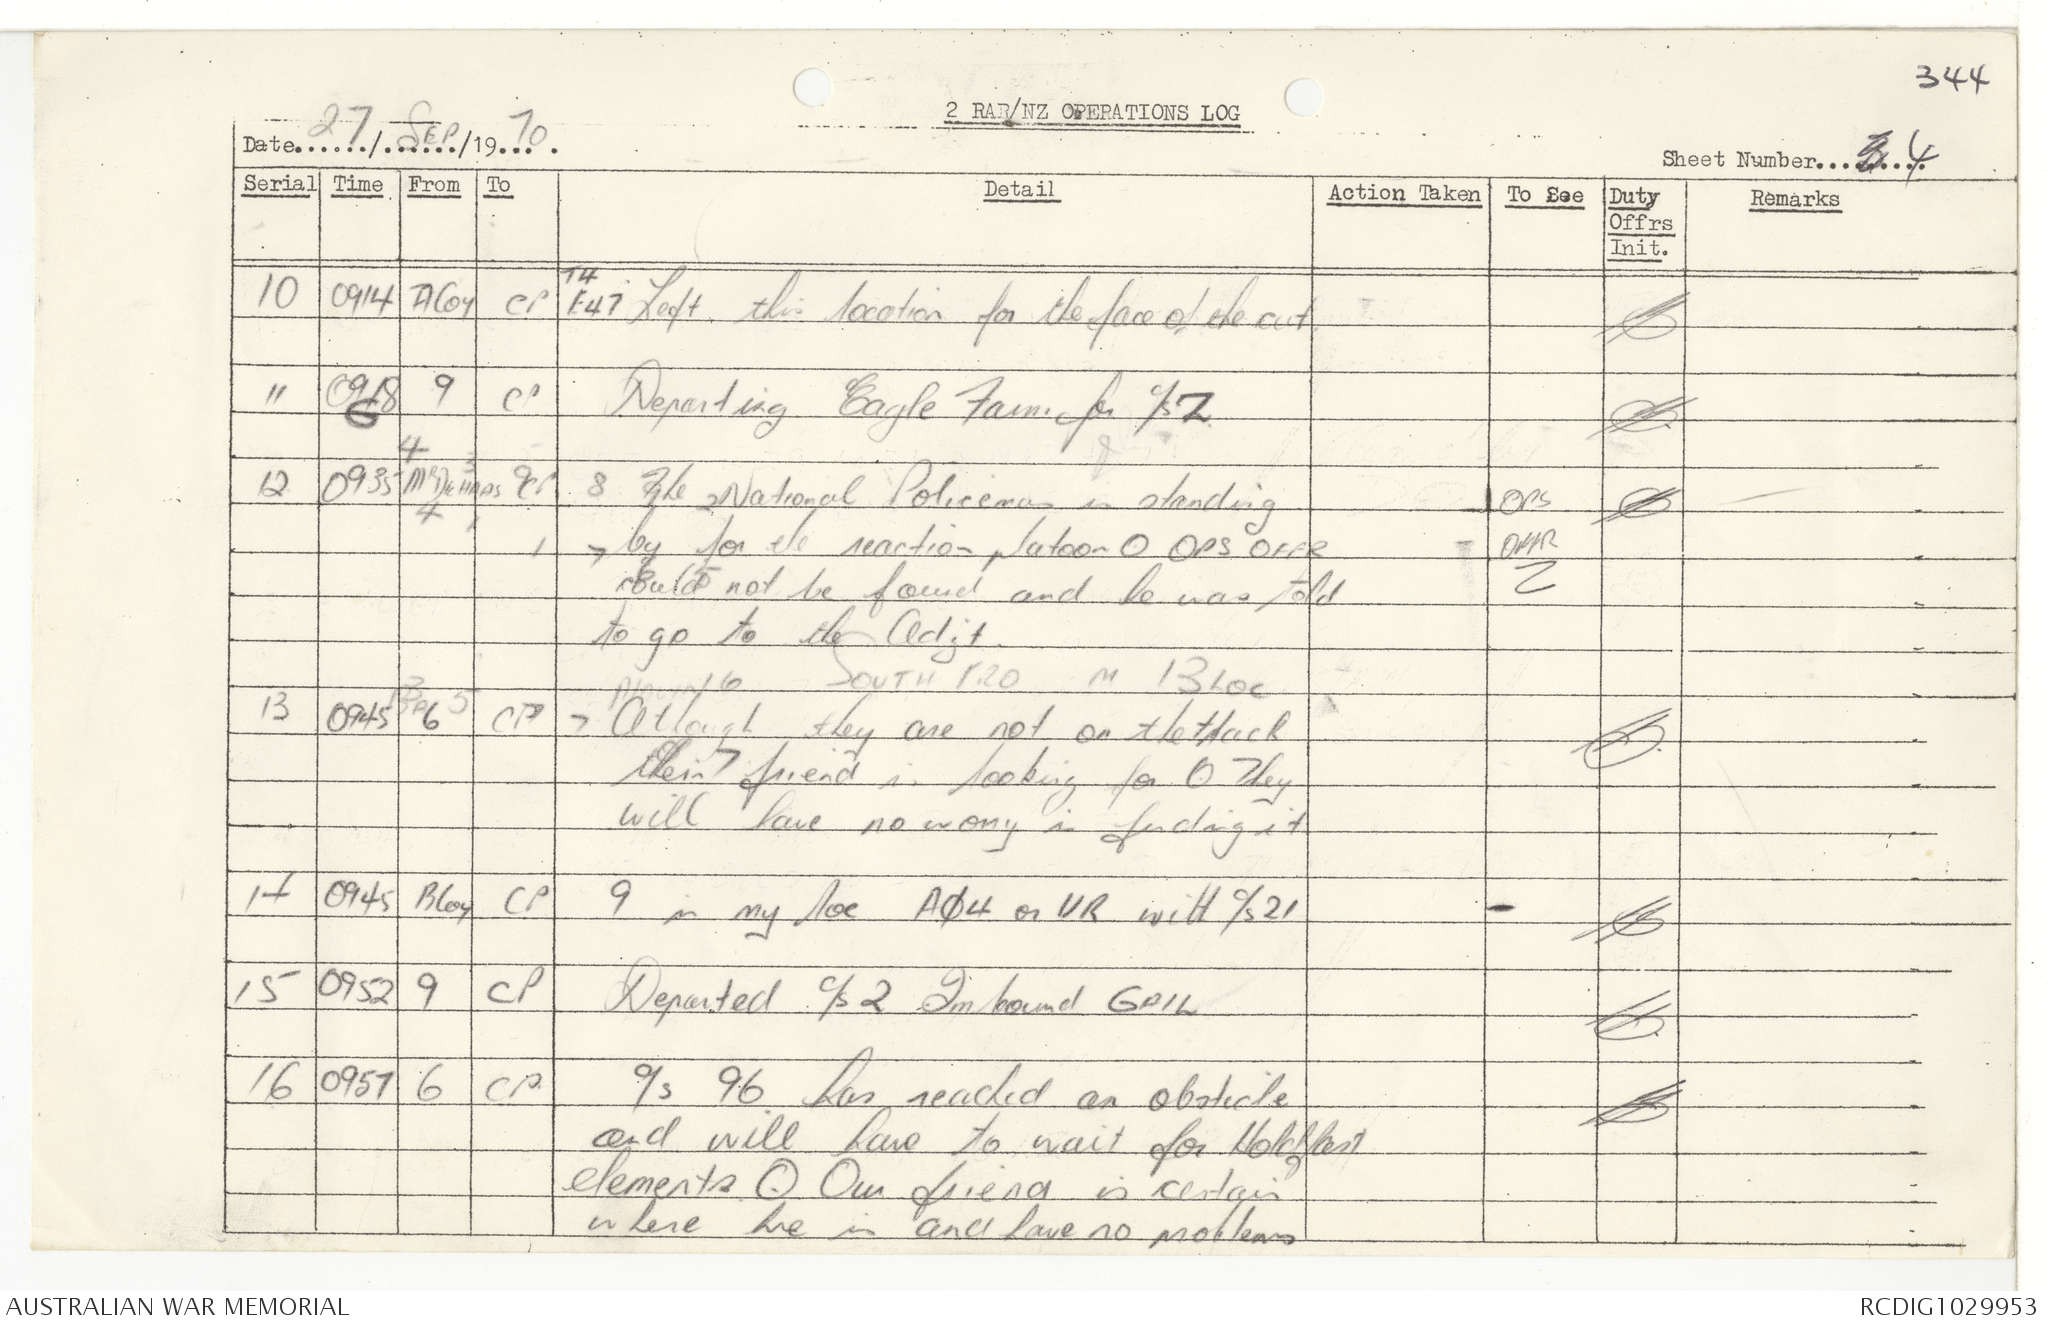 344
2 RAR/NZ OPERATIONS LOG
Date 27/SEP/1970.
Sheet Number 4
Serial Time From To Detail Action Taken To See Duty Offrs Init. Remarks
10 0914 A Coy CP Left this location for the face of the cut
11 0918 9 CP Departing Eagle Farm for c/s 2
12 0935 CP The National Policeman is standing OPS
by for the reaction platoon O OPS OFFR OFFR
could not be found and he was told 2
to go to the Adjt.
SOUTH 13 LOC
13 0945 6 CP Although they are not on the track
their friend is looking for O They
will have no worry in finding it
14 0945 B Coy CP 9 in my loc AØ4 or UR with c/s 21
15 0952 9 CP Departed c/s 2 Inbound GAIL
16 0957 6 CP c/s 96 has reached an obstacle
and will have to wait for Holdfast
elements O Our friend is certain
where he is and have no problems
AUSTRALIAN WAR MEMORIAL
RCDIG1029953